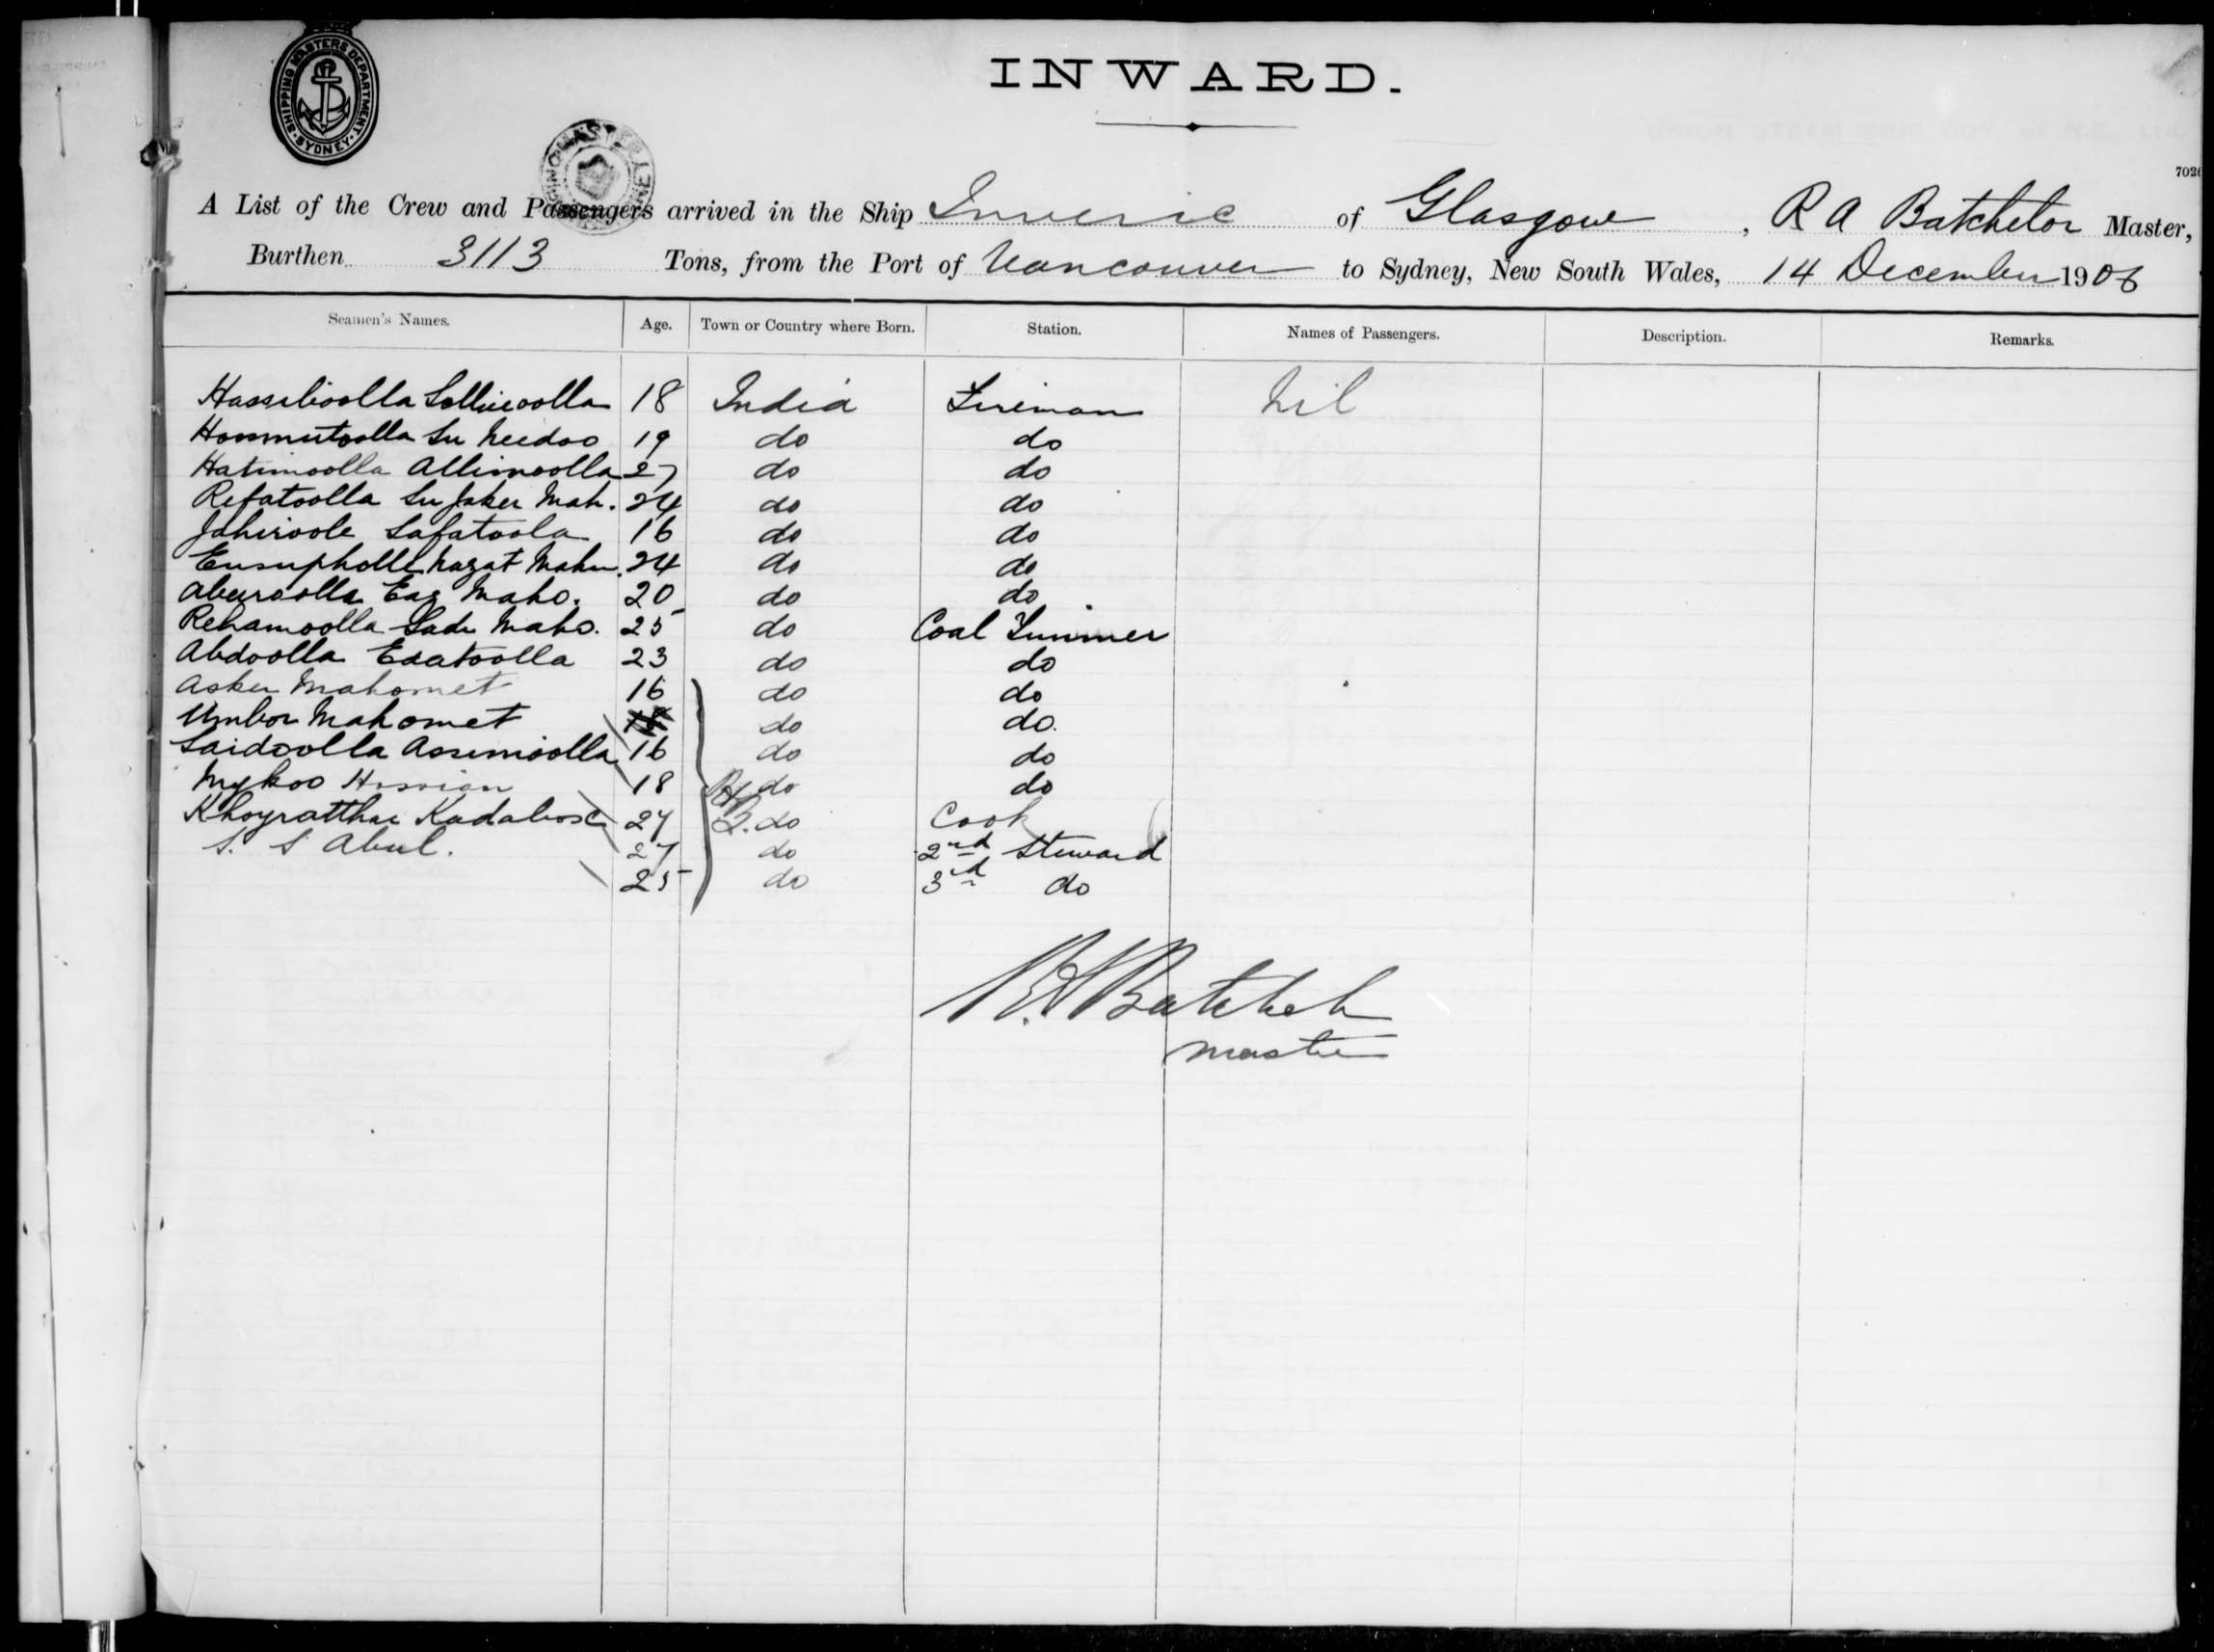 SHIPPING MASTERS DEPARTMENT
SYDNEY
INWARD.
7026
A List of the Crew and Passengers arrived in the Ship Inveric of Glasgow, R A Batchelor Master,
Burthen 3113 Tons, from the Port of Vancouver to Sydney, New South Wales, 14 December 1906
Seamen's Names. Age. Town or Country where Born. Station. Names of Passengers. Description. Remarks.
Hassiboolla 18 India Fireman Nil
19 do do
Hatimoolla Allimoolla 27 do do
Refatoolla Su Jaker Mah. 24 do do
Safatoola 16 do do
24 do do
Maho. 20 do do
Rehamoolla Sadu Maho. 25 do Coal Trimmer
Abdoolla Esatoolla 23 do do
Asker Mahomet 16 do do
Umbor Mahomet do do.
Saidoolla Assimoolla 16 do do
Hossian 18 do do
27 do Cook
S. S Abul. 27 do 2nd Steward
25 do 3rd do
R A Batchelor
Master